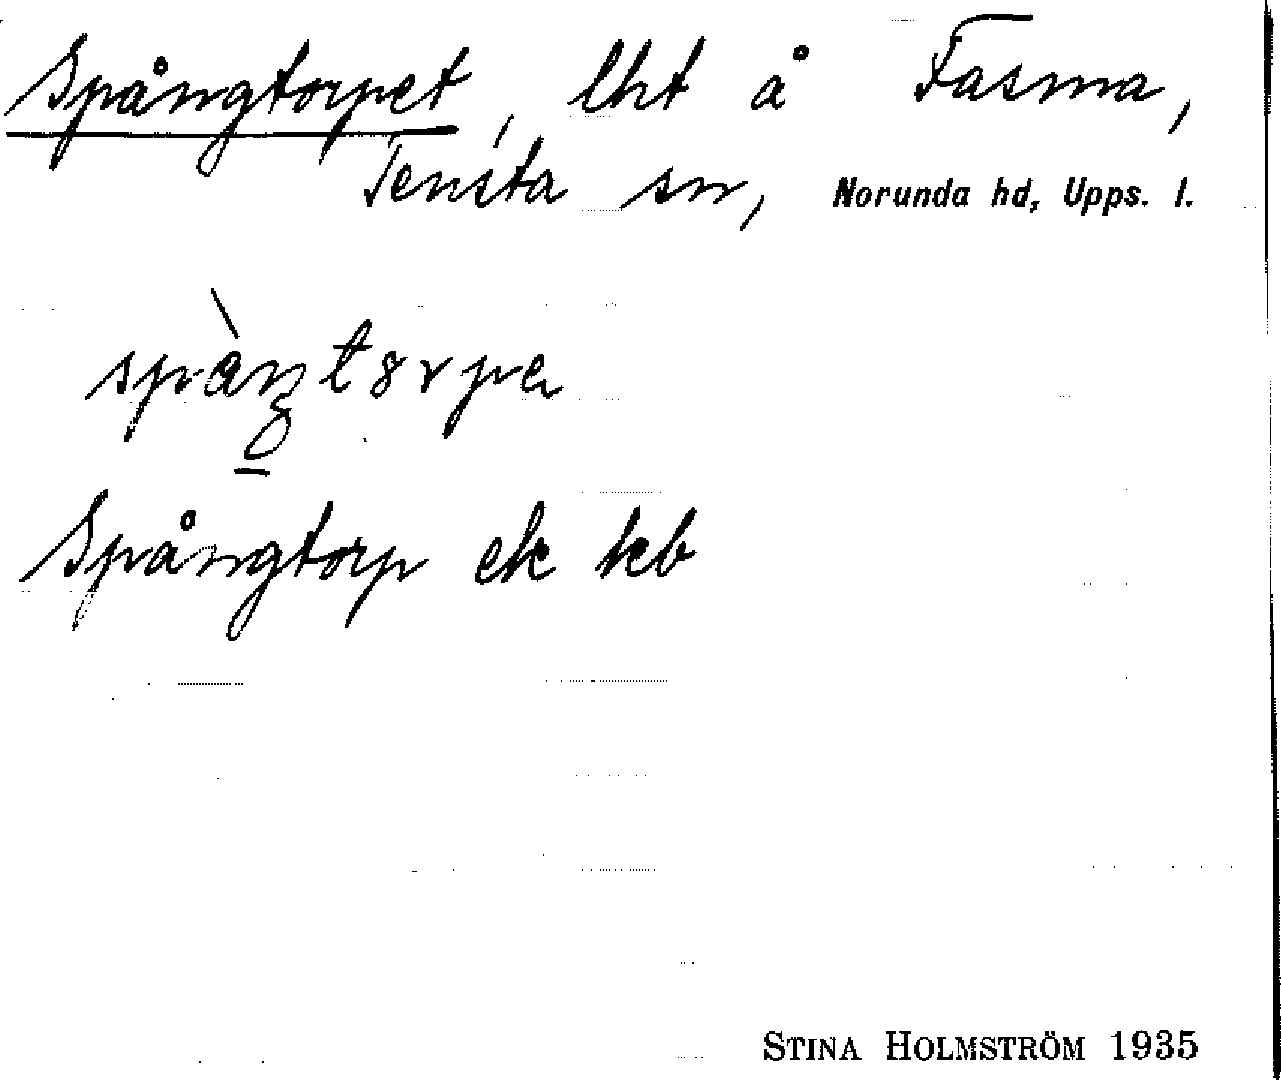 Spångtorpet, lht å Fasma,
Tensta sn, Norunda hd, Upps. l.
Spångtorp ek kb
STINA HOLMSTRÖM 1935